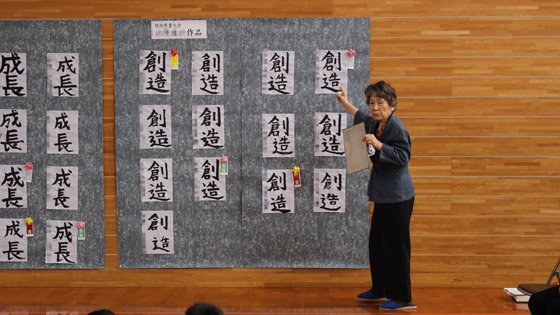 成長
成長
成長
成長
成長
成長
成長
成長
校内席書大会
作品
創造
創造
創造
創造
創造
創造
創造
創造
創造
創造
創造
創造
創造